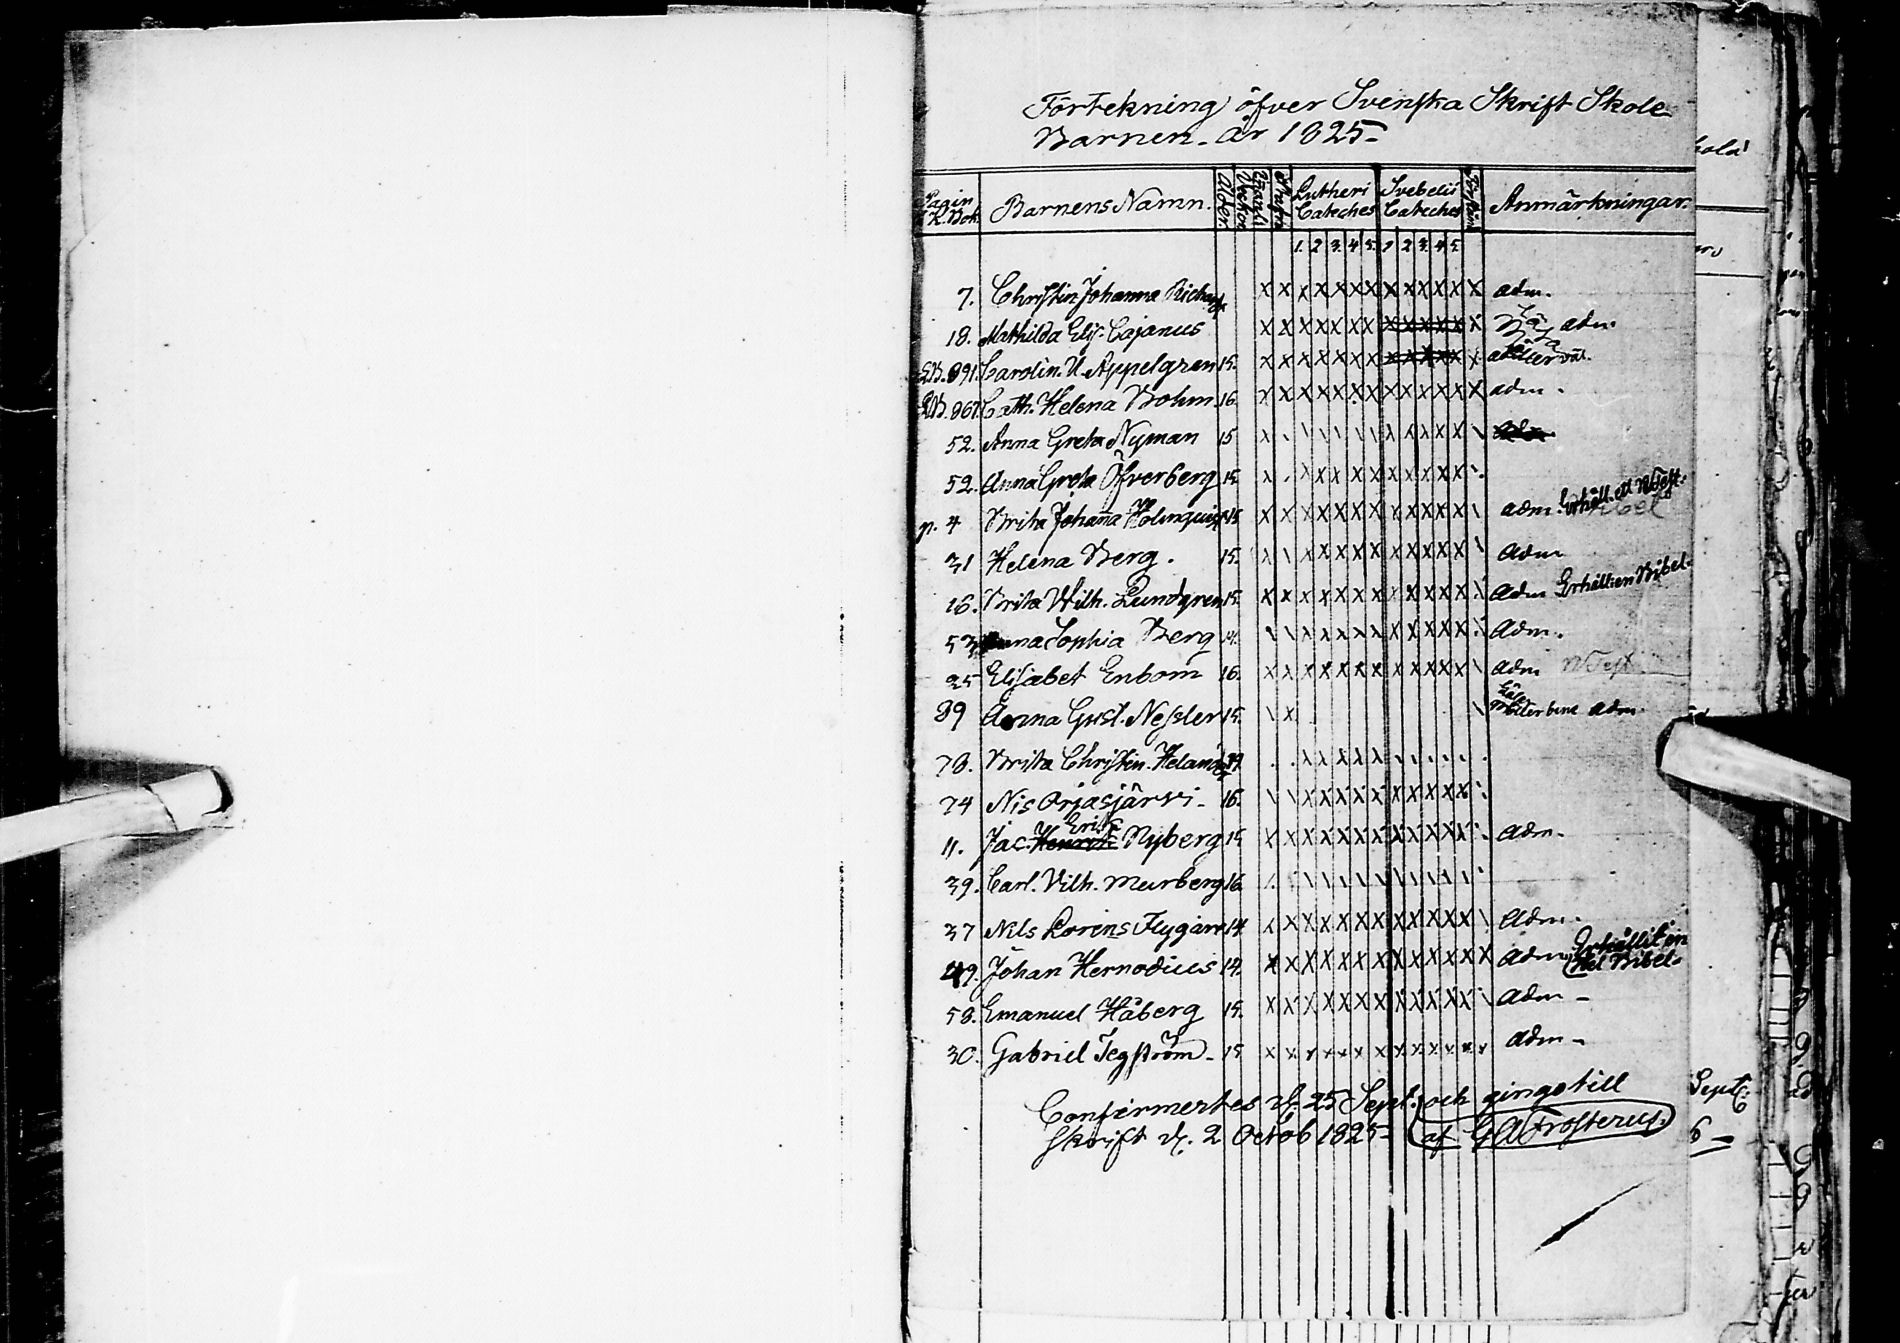 Förtekning öfver Svenska Skrift Skole
Barnen år 1825
Pagin K. Bok. Barnens Namn. Ålder. Lutheri Cateches Svebelii Cateches Anmärkningar.
1. 2 3. 4 5. 1 2 3. 4 5.
7. Christin Johanna x x x x x x x x x x x x x adm.
18. Mathilda Elis. Cajanus x x x x x x x x x x x x x adm.
891. Carolin. U. Appelgren 15. x x x x x x x x x x x x x
867. Cath. Helena Bohm. 16. x x x x x x x x x x x x x adm.
52. Anna Greta Nyman 15 adm
52. Anna Greta Öfverberg 15.
p. 4 Brita Johana Holmquist 15 adm. Erhåll. et N Test.
31 Helena Berg. 15. adm
16. Brita Wilh. Lundgren 15. adm Erhåll. en Bibel.
53 Anna Sophia Berg 14. adm.
25 Elisabet Enbom 16. adm N Test
89 Anna Gust. Nessler 15. adm.
78. Brita Christin.
74 Nis Orjasjärvi. 16.
11. Jac. Henrik Erik Nyberg 15 adm.
39. Carl. Vilh. Murberg 16.
37 Nils Lorens Flygare 14 adm.
49. Johan Hernodius 14. adm. Erhållit en Bibel.
58. Emanuel Håberg 15. adm -
30. Gabriel Tegström 15 adm -
Confirmertes d. 25 Sept. och gingo till
Skrift d. 2 Octob 1825 af G A Frosterus.
Sept:
6